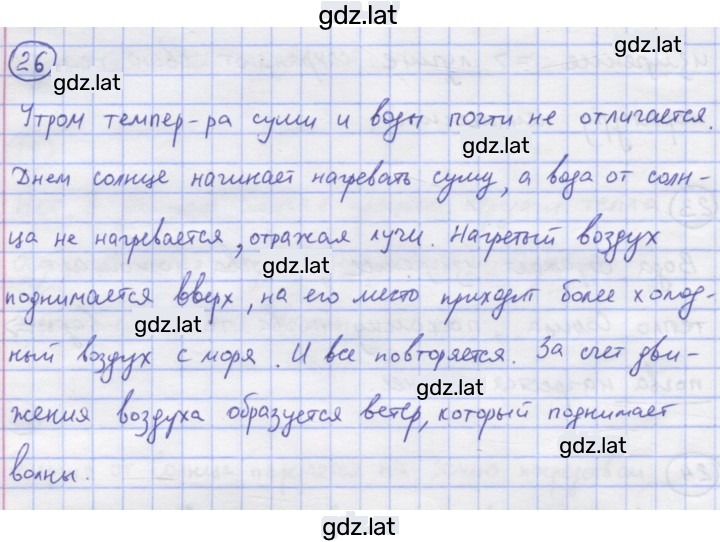 gdz.lat
26
gdz.lat
gdz.lat
Утром темпер-ра суши и воды почти не отличается.
gdz.lat
Днем солнце начинает нагревать сушу, а вода от солн-
ца не нагревается, отражая лучи. Нагретый воздух
gdz.lat
поднимается вверх, на его место приходит более холод-
gdz.lat
ный воздух с моря. И все повторяется. За счет дви-
gdz.lat
жения воздуха образуется ветер, который поднимает
gdz.lat
волны.
gdz.lat